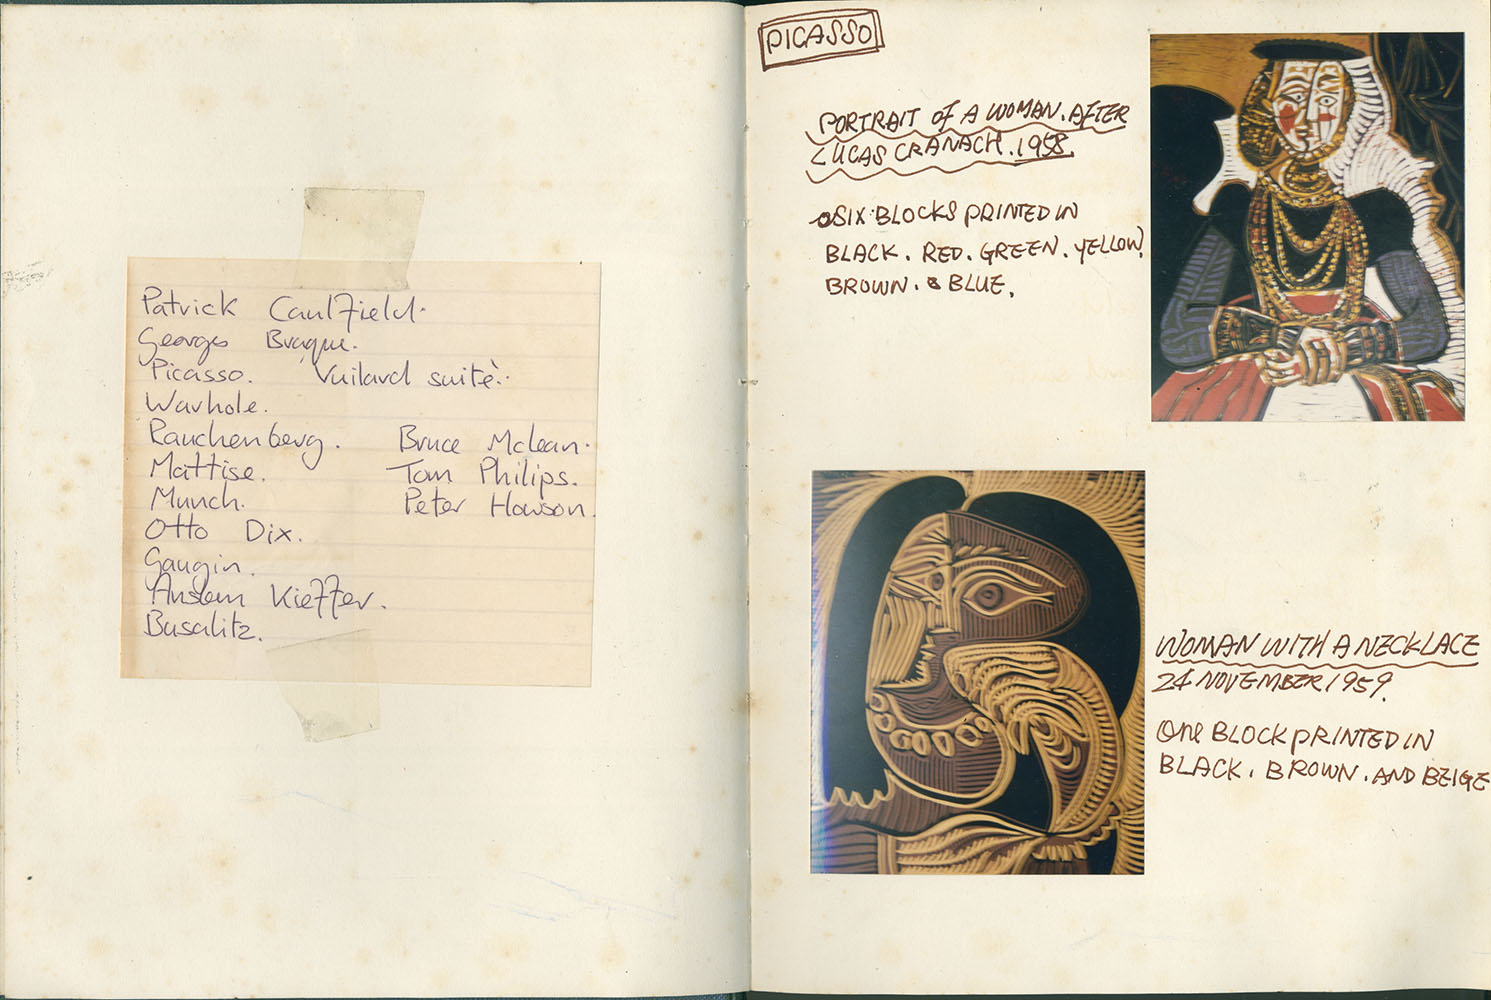 Patrick Caulfield.
Georges Braque.
Picasso. Vuilard suitè.
Warhole.
Rauchenberg. Bruce Mclean.
Mattise. Tom Philips.
Munch. Peter Howson.
Otto Dix.
Gaugin.
Anslem Kieffer.
Busalitz.
PICASSO
PORTRAIT OF A WOMAN. AFTER
LUCAS CRANACH. 1958.
SIX BLOCKS PRINTED IN
BLACK. RED. GREEN. YELLOW.
BROWN. & BLUE.
WOMAN WITH A NECKLACE
24 NOVEMBER 1959.
One BLOCK PRINTED IN
BLACK. BROWN. AND BEIGE